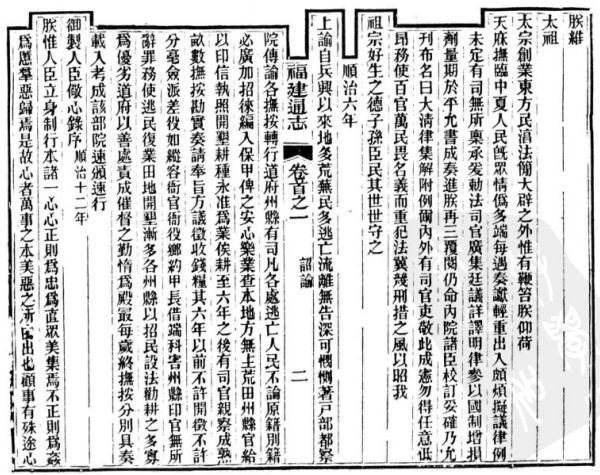 朕維
太祖
太宗創業東方民淳法簡大辟之外惟有鞭笞朕仰荷
天庥撫臨中夏人民旣眾情僞多端每遇奏讞輕重出入頗煩擬議律例
未定有司無所稟承爰勅法司官廣集廷議詳譯明律參以國制增損
劑量期於平允書成奏進朕再三覆閱仍命內院諸臣校訂妥確乃允
刊布名曰大清律集解附例爾內外有司官吏敬此成憲勿得任意低
昂務使百官萬民畏名義而重犯法冀幾刑措之風以昭我
祖宗好生之德子孫臣民其世世守之
順治六年
上諭自兵興以來地多荒蕪民多逃亡流離無告深可憫惻著戸部都察
福建通志
卷首之一
詔諭
二
院傳諭各撫按轉行道府州縣有司凡各處逃亡人民不論原籍別籍
必廣加招徠編入保甲俾之安心樂業查本地方無主荒田州縣官給
以印信執照開墾耕種永准爲業俟耕至六年之後有司官親察成熟
畝數撫按勘實奏請奉旨方議徵收錢糧其六年以前不許開徵不許
分毫僉派差役如縱容衙官衙役鄉約甲長借端科害州縣印官無所
辭罪務使逃民復業田地開墾漸多各州縣以招民設法勸耕之多寡
爲優劣道府以善處責成催督之勤惰爲殿最每歲終撫按分別具奏
載入考成該部院速頒速行
御製人臣儆心錄序 順治十二年
朕惟人臣立身制行本諸一心心正則爲忠爲直眾美集焉不正則爲姦
爲慝羣惡歸焉是故心者萬事之本美惡之所由出也顧事有殊途心